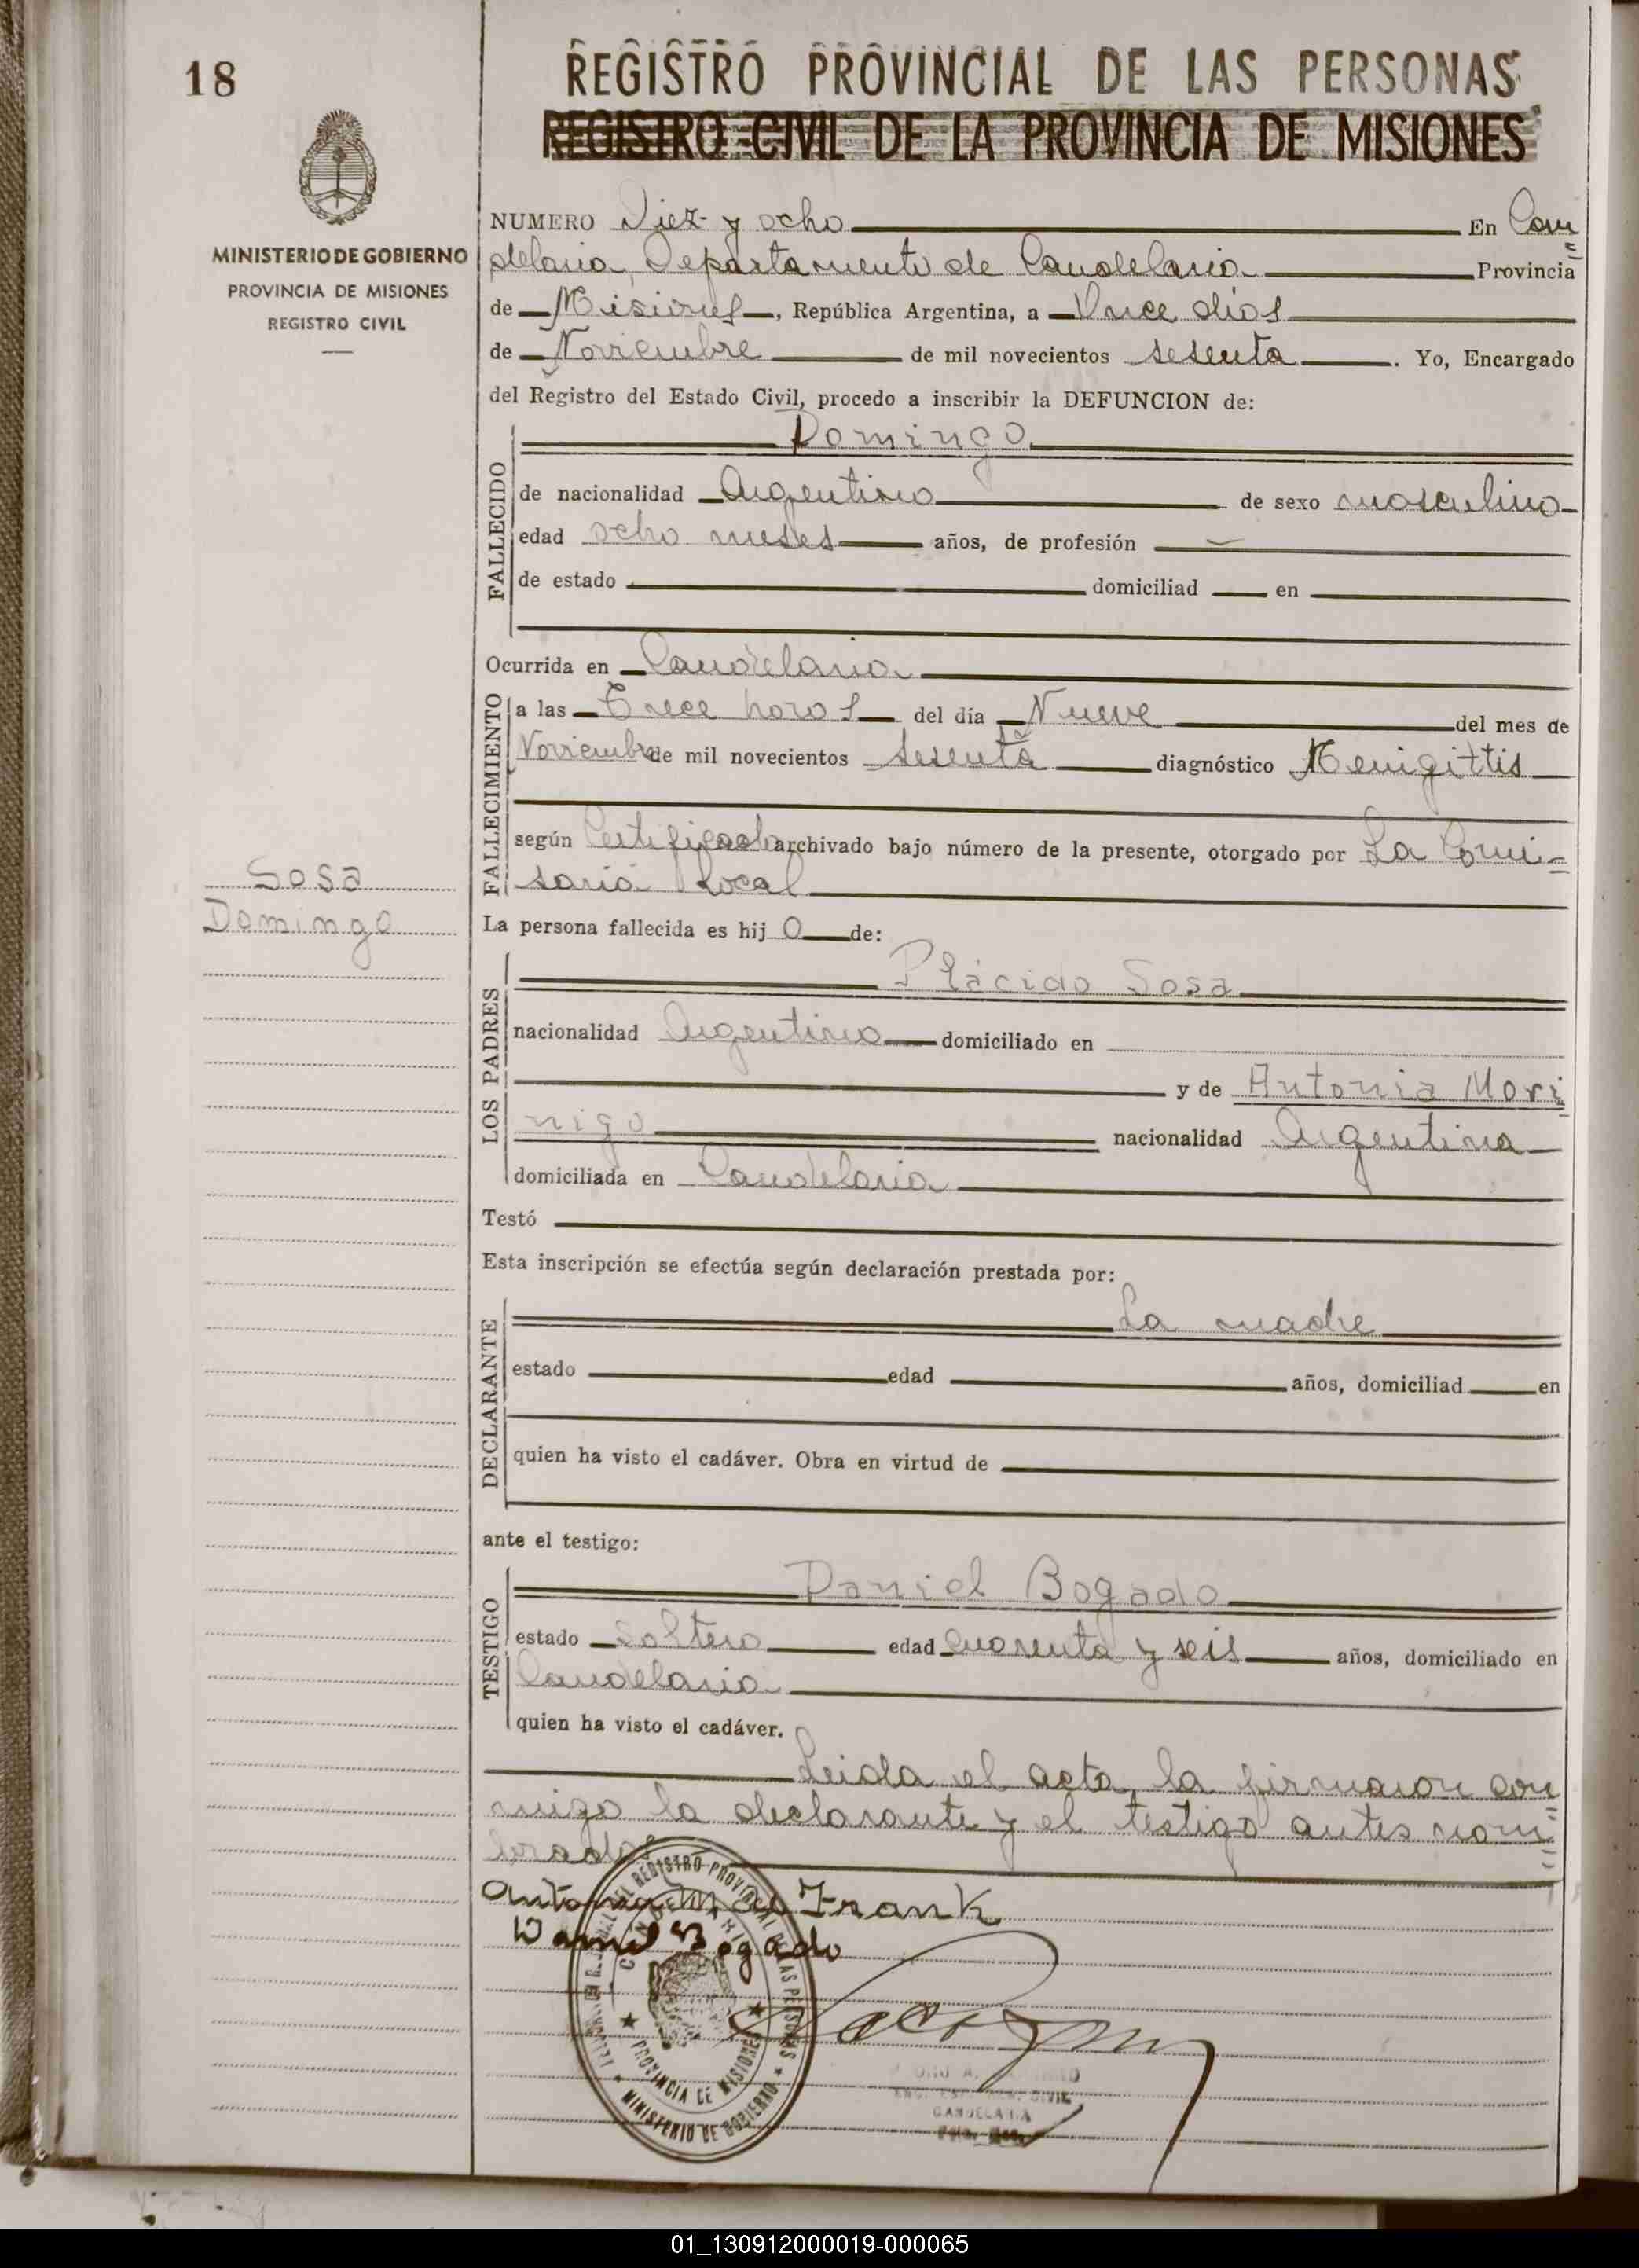 18
REGISTRO PROVINCIAL DE LAS PERSONAS
REGISTRO CIVIL DE LA PROVINCIA DE MISIONES
MINISTERIO DE GOBIERNO
PROVINCIA DE MISIONES
REGISTRO CIVIL
NUMERO Diez y ocho En Can
delaria, Departamento de Candelaria Provincia
de Misiones, República Argentina, a Once días
de Noviembre de mil novecientos sesenta. Yo, Encargado
del Registro del Estado Civil, procedo a inscribir la DEFUNCION de:
FALLECIDO
Domingo
de nacionalidad Argentino de sexo masculino
edad ocho meses años, de profesión
de estado domiciliad en
Ocurrida en Candelaria
FALLECIMIENTO
a las Trece horas del día Nueve del mes de
Noviembre de mil novecientos sesenta diagnóstico Menigittis
según Certificado archivado bajo número de la presente, otorgado por La Comi-
saria Local
Sosa
Domingo
La persona fallecida es hij o de:
LOS PADRES
Plácido Sosa
nacionalidad Argentino domiciliado en
y de Antonia Mori
nigo nacionalidad Argentina
domiciliada en Candelaria
Testó
Esta inscripción se efectúa según declaración prestada por:
DECLARANTE
La madre
estado edad años, domiciliad en
quien ha visto el cadáver. Obra en virtud de
ante el testigo:
TESTIGO
Daniel Bogado
estado Soltero edad Cuarenta y seis años, domiciliado en
Candelaria
quien ha visto el cadáver.
Leida el acta, la firmaron con
migo la declarante y el testigo antes nom
brados
Antonia Frank
Daniel Bogado
REGISTRO PROVINCIAL DE LAS PERSONAS
PROVINCIA DE MISIONES
MINISTERIO DE GOBIERNO
CIVIL
CANDELARIA
01_130912000019-000065